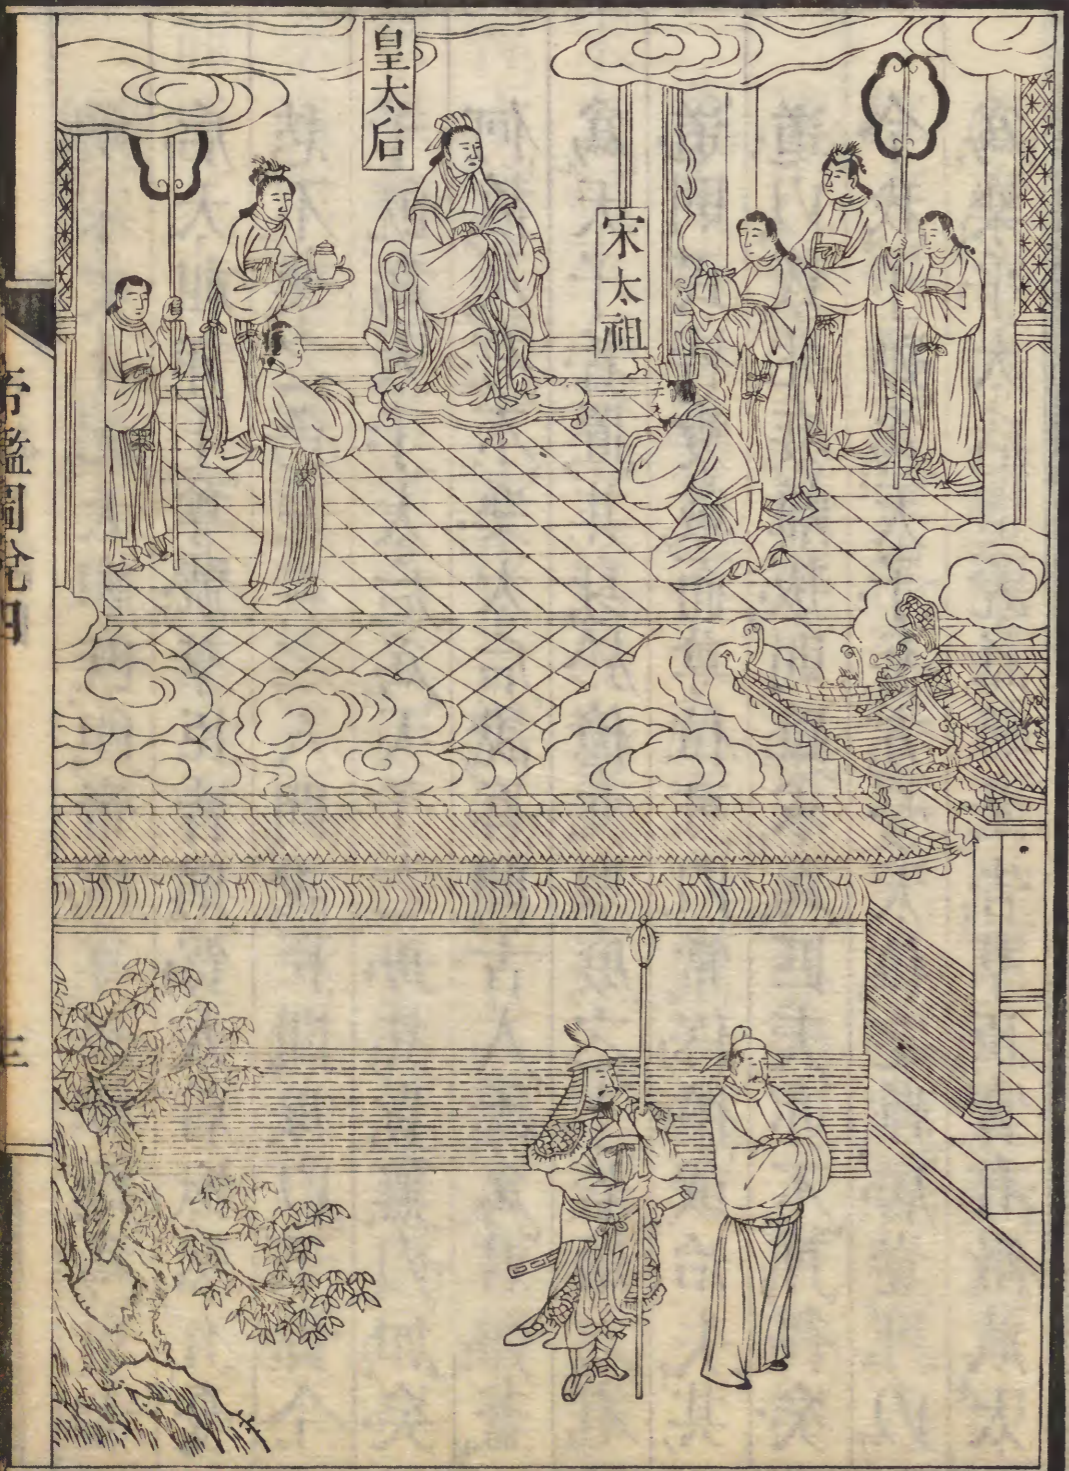 皇太后
宋太祖
帝鑑圖說四
三